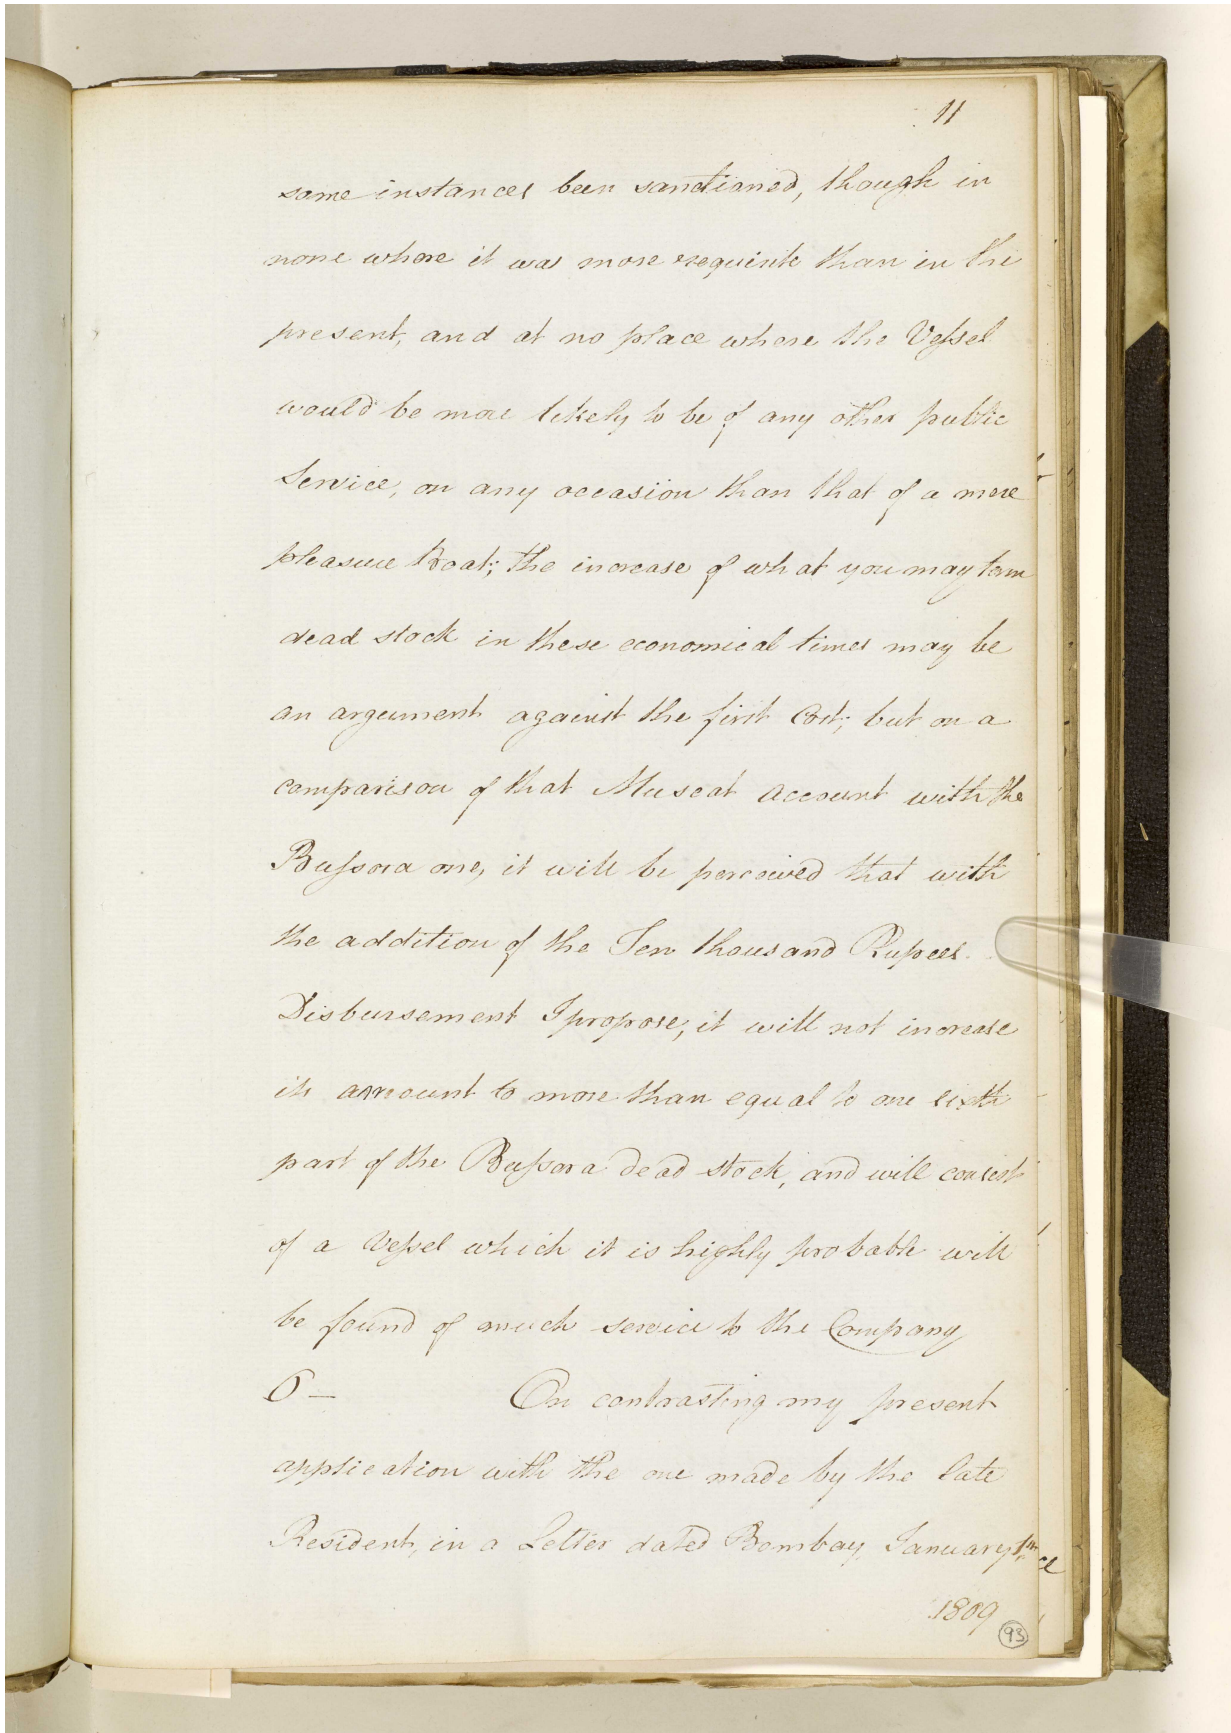 11
some instances been sanctioned, though in
none where it was more requisite than in the
present, and at no place where the Vessel
would be more likely to be of any other public
Service, on any occasion than that of a mere
pleasure Boat; the increase of what you may term
dead stock in these economical times may be
an argument against the first Cost; but on a
comparison of that Muscat Account with the
Bussora one, it will be perceived that with
the addition of the Ten thousand Rupees
Disbursement I propose, it will not increase
its amount to more than equal to one sixth
part of the Bussora dead stock, and will consist
of a Vessel which it is highly probable will
be found of much service to the Company
6 — On contrasting my present
application with the one made by the late
Resident, in a Letter dated Bombay, January
1809
93